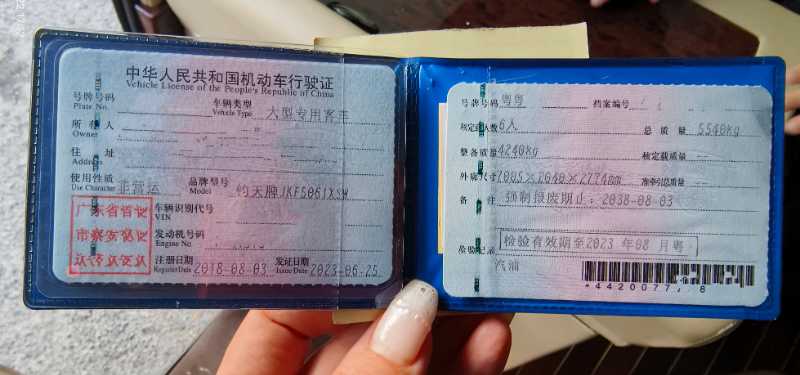 中华人民共和国机动车行驶证
Vehicle License of the People's Republic of China
号牌号码
Plate No.
车辆类型
Vehicle Type
大型专用客车
所有人
Owner
住址
Address
使用性质
Use Character
非营运
品牌型号
Model
车辆识别代号
VIN
发动机号码
Engine No.
注册日期
Register Date
2018-08-03
发证日期
Issue Date
2023-06-25
广东省
号牌号码 粤粤
档案编号
核定载人数 6人
总质量 5540kg
整备质量 4240kg
核定载质量 --
外廓尺寸 7005×2040×2774mm
准牵引总质量 --
备注 强制报废期止：2038-08-03
检验记录
检验有效期至2023年08月粤
汽油